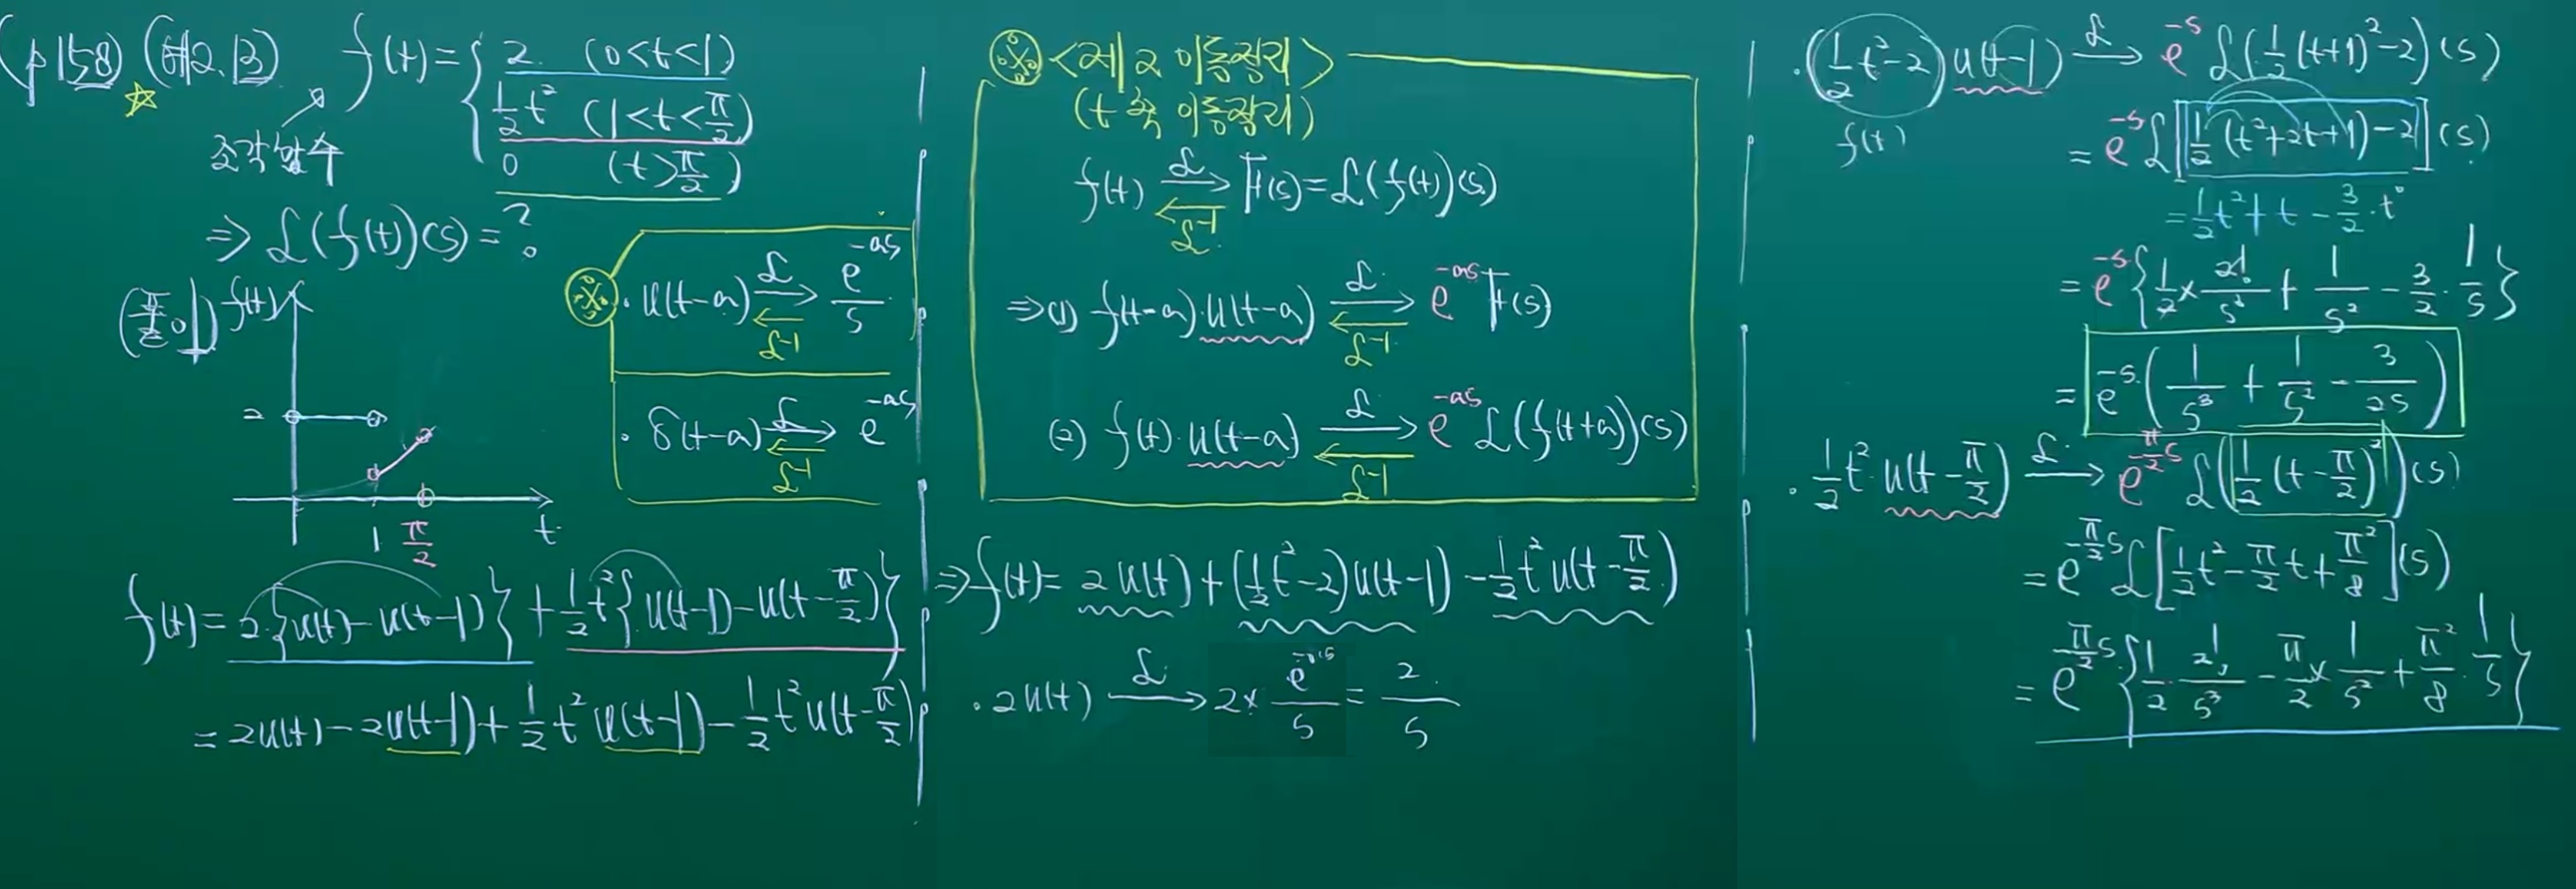 (p158) (예2.13) f(t)= { 2. (0<t<1)
½t² (1<t<π/2)
0 (t>π/2)
조각함수
⇒ ℒ(f(t))(s)=?
(풀이) f(t)
2
1 π/2 t
f(t)= 2·{u(t)-u(t-1)} + ½t²{u(t-1)-u(t-π/2)}
= 2u(t)-2u(t-1)+½t²u(t-1)-½t²u(t-π/2)
※ · u(t-a) ℒ→ ←ℒ⁻¹ e^{-as}/s
· δ(t-a) ℒ→ ←ℒ⁻¹ e^{-as}
※ <제2 이동정리>
(t축 이동정리)
f(t) ℒ→ ←ℒ⁻¹ F(s)=ℒ(f(t))(s)
⇒(1) f(t-a)·u(t-a) ℒ→ ←ℒ⁻¹ e^{-as}F(s)
(2) f(t)·u(t-a) ℒ→ ←ℒ⁻¹ e^{-as}ℒ(f(t+a))(s)
⇒f(t)= 2u(t)+(½t²-2)u(t-1)-½t²u(t-π/2)
· 2u(t) ℒ→ 2× e^{-0·s}/s = 2/s
· (½t²-2)u(t-1) ℒ→ e^{-s}ℒ(½(t+1)²-2)(s)
f(t)
= e^{-s}ℒ[½(t²+2t+1)-2](s)
=½t²+t-3/2·t⁰
= e^{-s}{½×2!/s³+1/s²-3/2·1/s}
= e^{-s}·(1/s³+1/s²-3/2s)
· ½t²·u(t-π/2) ℒ→ e^{-π/2 s}ℒ(½(t-π/2)²)(s)
= e^{-π/2 s}ℒ[½t²-π/2 t+π²/8](s)
= e^{-π/2 s}·{½·2!/s³-π/2×1/s²+π²/8·1/s}